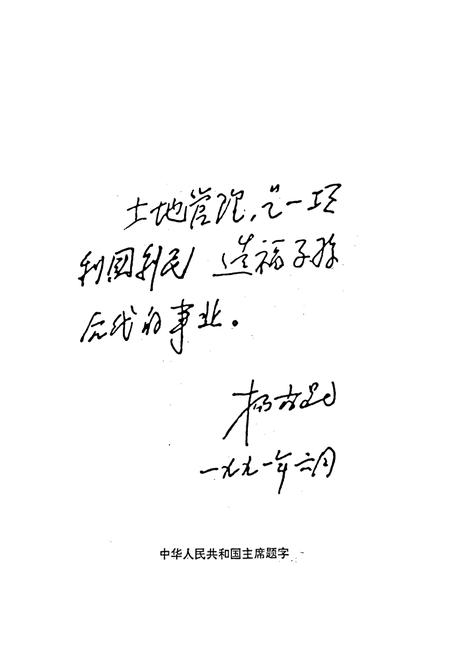 土地管理,是一项
利国利民 造福子孙
后代的事业。
杨尚昆
一九九一年六月
中华人民共和国主席题字